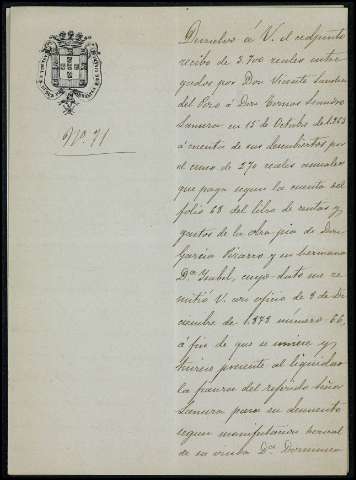 Nº. 71
Devuelvo á V. el adjunto
recibo de 3.700 reales entre
gados por Don Vicente Sanchez
del Pozo á Don Tomas
en 15 de Octubre de 1.853
á cuenta de sus descubiertos por
el censo de 270 reales anuales
que paga segun la cuenta del
folio 68 del libro de rentas y
gastos de la obra-pia de Don
Garcia Pizarro y su hermana
Dª Isabel, cuyo dato me re
mitió V. con oficio de 3 de Di
ciembre de 1.873 número 66,
á fin de que se uniera y
tuviera presente al liquidar
la fianza del referido Señor
para su descuento
segun manifestacion verbal
de su viuda Dª